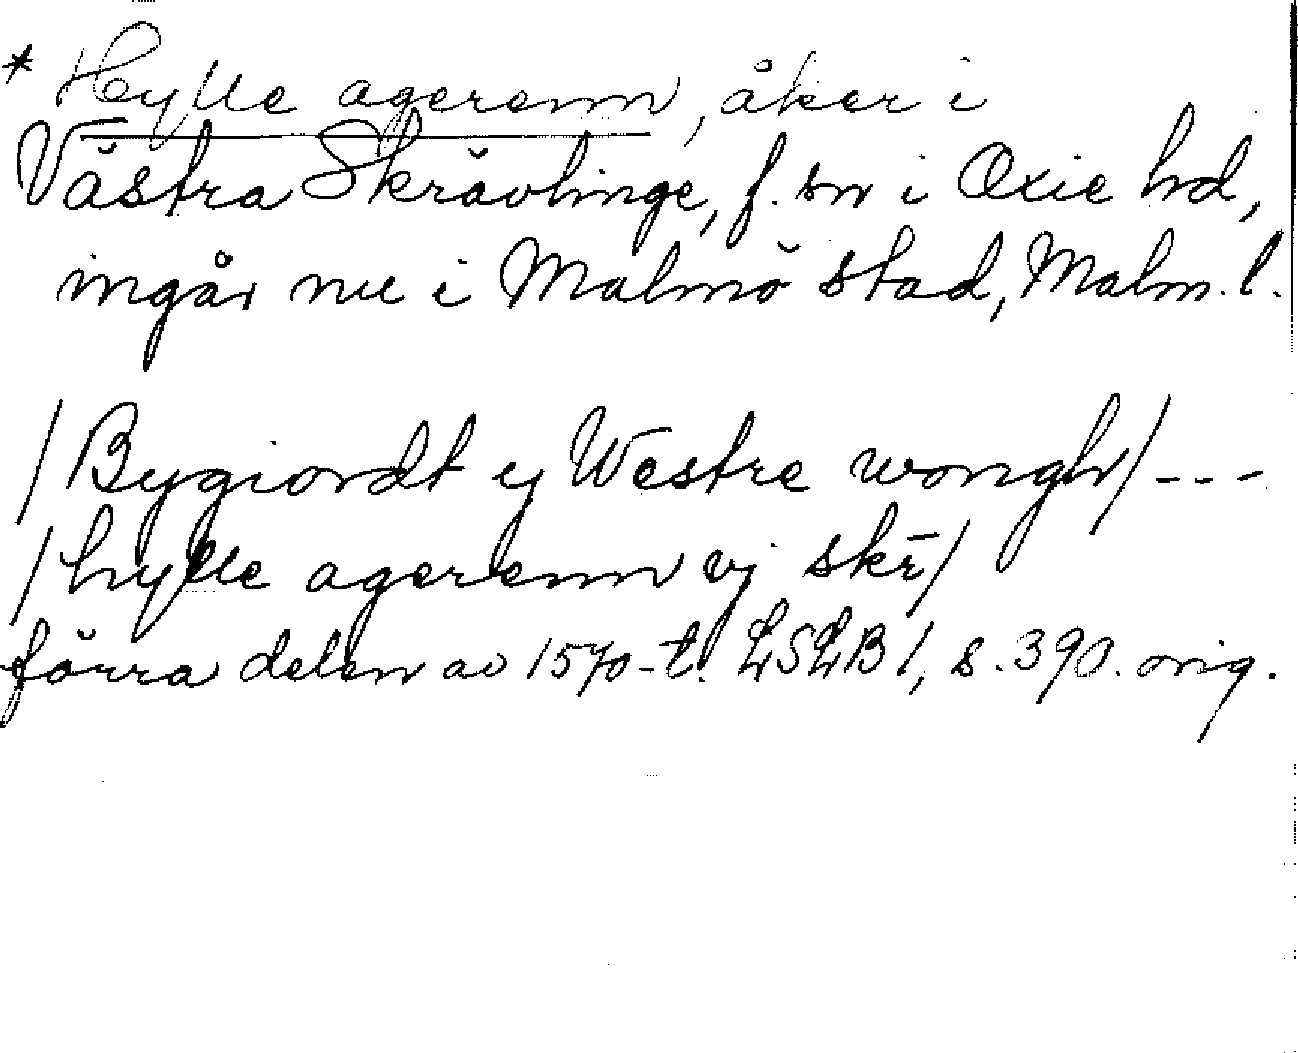 * Hylle agerenn, åker i
Västra Skrävlinge, f. sn i Oxie hd,
ingår nu i Malmö stad, Malm. l.
/Bygiordt ej Westre wongh/ ---
/hylle agerenn vj skr̄/
förra delen av 1570-t. LSLB 1, s. 390. orig.